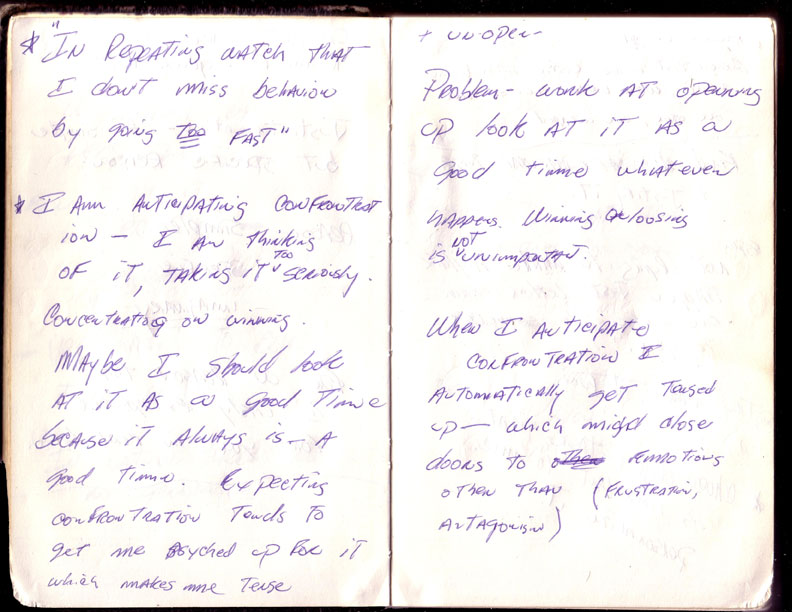 * "In Repeating watch that
I don't miss behavior
by going too FAST"
* I Am Anticipating CONFRONTRAT
ion — I Am thinking
OF it, TAKING iT TOO seriously.
Concentrating on winning.
MAybe I should look
AT iT AS a good Time
because iT Always is — A
good timme. Expecting
CONFRONTRATION Tends To
get me psyched up For iT
which makes me Tense
+ un-open-
Problem - work AT openning
up look AT iT AS a
good timme whatever
happens. Winning or loosing
is NOT unimportant.
When I Anticipate
CONFRONTRATION I
AutomaticAlly get Tensed
up — which might close
doors to emotions
other Than (FRUSTRATION,
ANTAgonism)